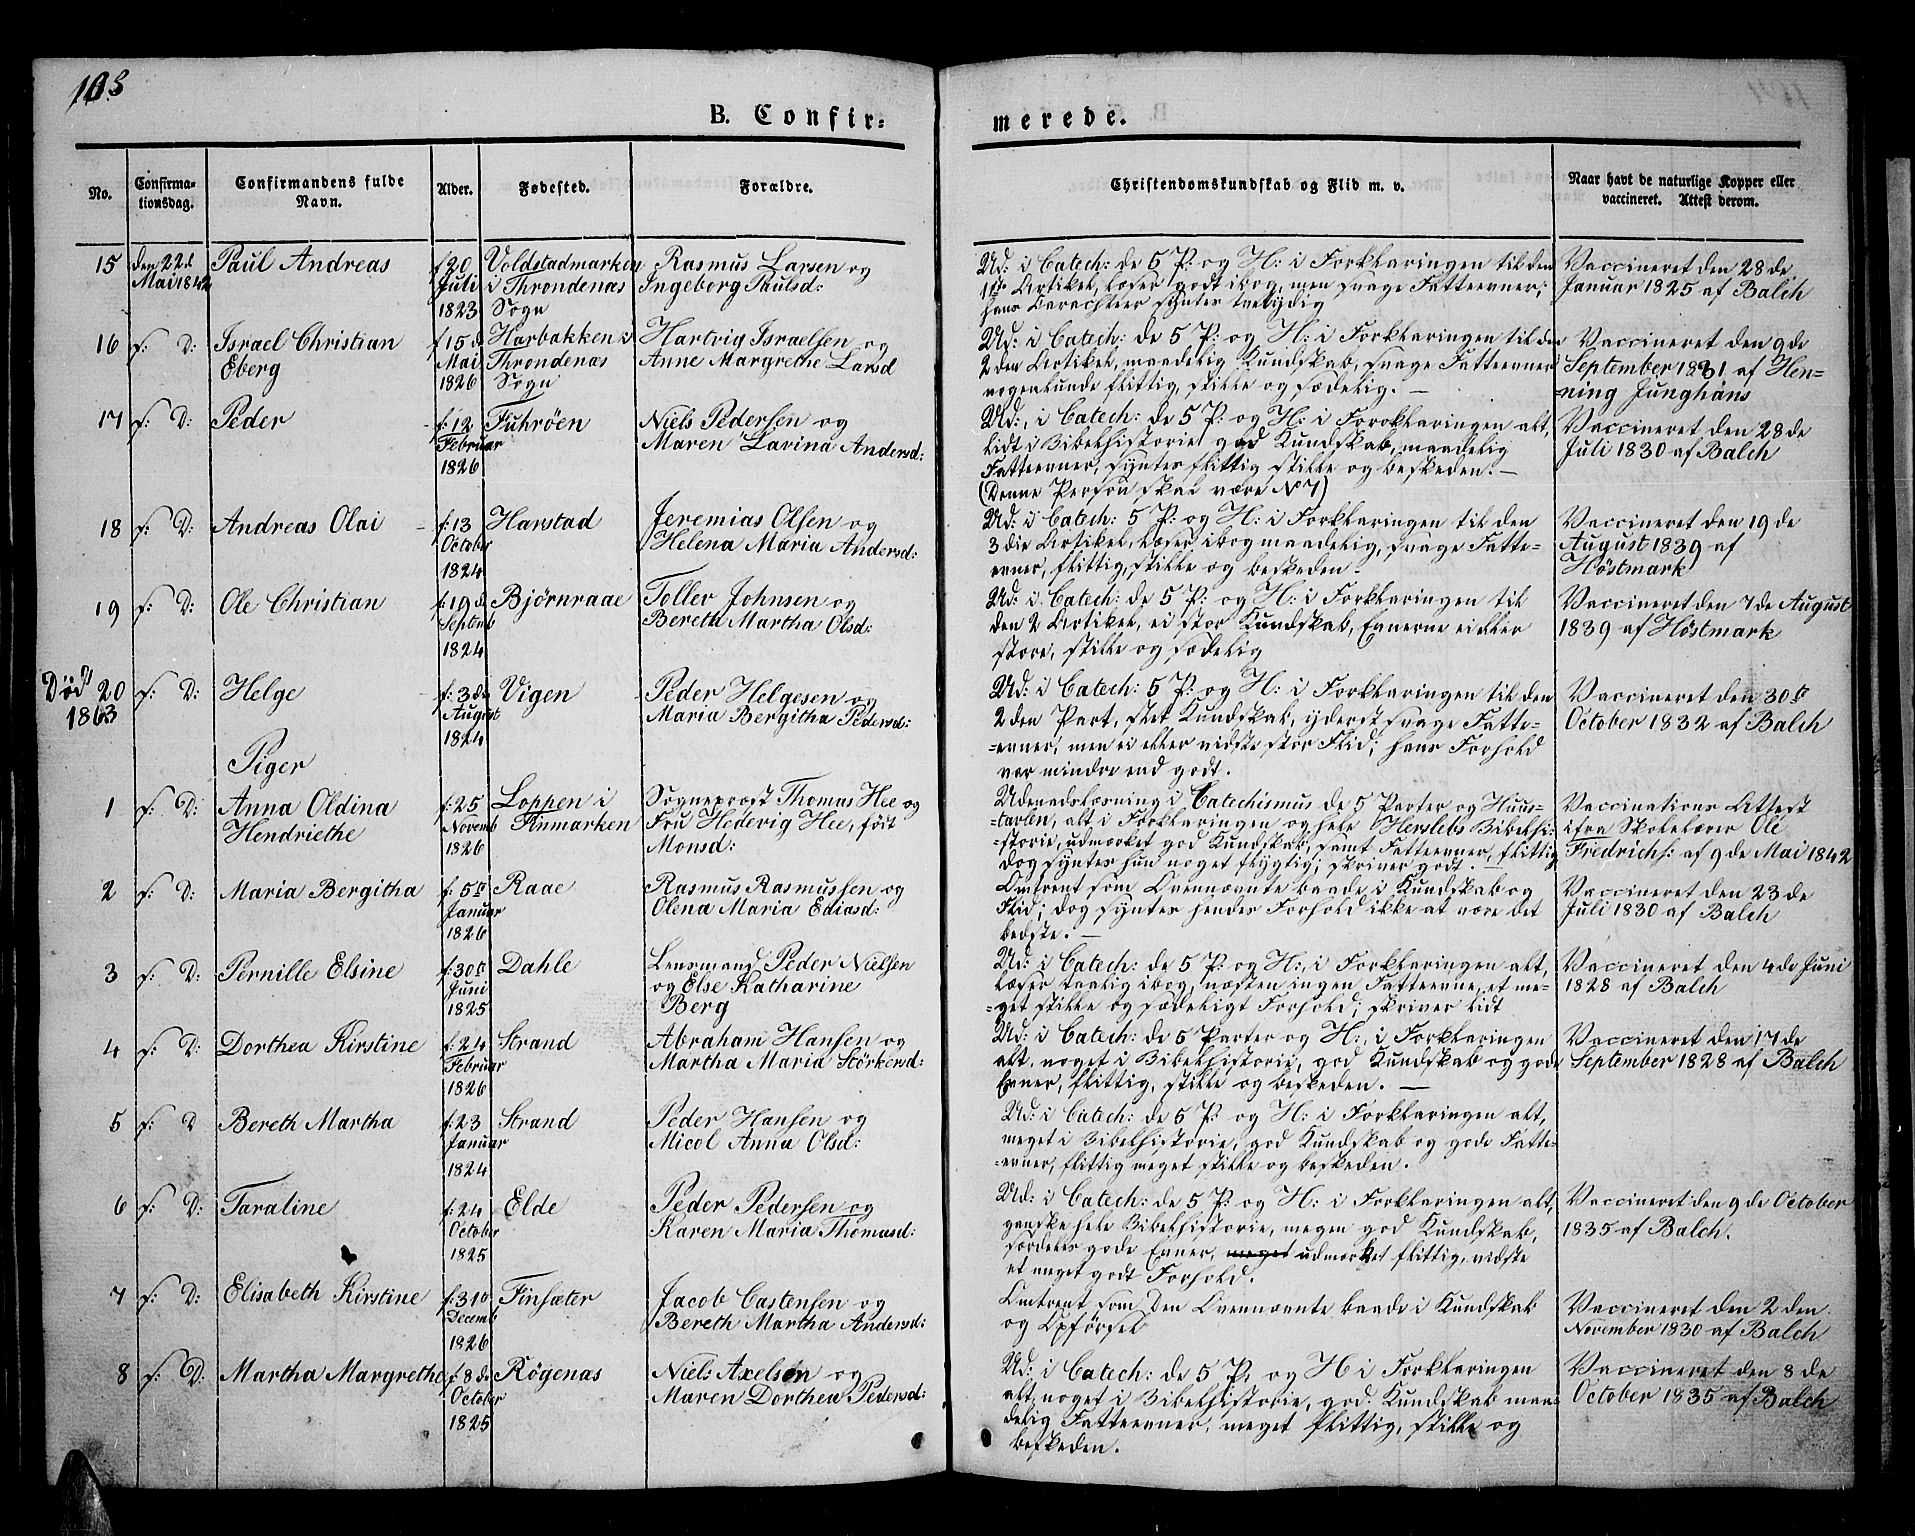 103
B. Confir=
merede.
No.
Confirma-
tionsdag.
Confirmandens fulde
Navn.
Alder.
Fødested.
Forældre.
Christendomskundskab og Flid m. v.
Naar havt de naturlige Kopper eller
vaccineret. Attest derom.
15 den 22d Paul Andreas f 20 Voldstadmarken Rasmus Larsen og
Mai 1842 Juli i Throndenæs Ingeborg Paulsd:
1823 Sogn
Ud: i Catech: de 5 P: og H: i Forklaringen til den
1ste Artikel, læser godt ibog, men svage Fatteevner;
hans Carachteer syntes tvetydig
Vaccineret den 28de
Januar 1825 af Balch
16 f: D: Israel Christian f 15 d Harbakken i Hartvig Israelsen og
Eberg Mai Throndenæs Anne Margrethe Larsd
1826 Sogn
Ud: i Catech: de 5 P: og H: i Forklaringen til den
2den Artikel, maadelig Kundskab, svage Fatteevner
nogenlunde flittig, stille og sædelig. —
Vaccineret den 9de
September 1831 af Hen=
ning Junghans
17 f: D: Peder f: 12 Fuhröen Niels Pedersen og
Februar Maren Lavina Andersd:
1826
Ud:, i Catech: de 5 P: og H: i Foroklaringen alt,
lidt i Bibelhistorie god Kundskab, maadelig
Fatteevner, syntes flittig stille og beskeden. —
(Denne Person skal være No 7)
Vaccineret den 28de
Juli 1830 af Balch
18 f: D: Andreas Olai f: 13 Harstad Jeremias Olsen og
October Helena Maria Andersd:
1824
Ud: i Catech: 5 P: og H: i Forklaringen til den
3die Artikel, læser ibog maadelig, svage Fatte=
evner, flittig, stille og beskeden -
Vaccineret den 19de
August 1839 af
Höstmark
19 f: D: Ole Christian f: 19 d Björnraae Toller Johnsen og
Septmb Bereth Martha Olsd:
1824
Ud: i Catech: de 5 P: og H: i Forklaringen til
den 2 Artikel, ei stor Kundskab, Evnerne ei eller
store, stille og sædelig
Vaccineret den 7de August
1839 af Höstmark
Död 20 f: D: Helge f: 3de Vigen Peder Helgesen og
1863 August Maria Bergitha Pedersd:
1824
Ud: i Catech: 5 P: og H: i Forklaringen til den
2den Part, slet Kundskab, yderst svage Fatte=
=evner, men ei eller vidste stor Flid; hans Forhold
var mindre end godt.
Vaccineret den 30te
October 1832 af Balch
Piger
1 f: D: Anna Oldina f: 25 Loppen i Sognepræst Thomas Hee og
Hendriethe Novemb Finmarken Fru Hedevig Hee, född
1826 Monsd:
Udenadslæsning i Catechismus de 5 Parter og Huus=
=tavlen, alt i Forklaringen og hele Herslebs Bibelhi=
=storie, udmærket god Kundskab, samt Fatteevner, flittig
dog syntes hun noget flygtig; skriver godt. —
Vaccinations Attest
ifra Skolelærer Ole
Fredrichs: af 9de Mai 1842
2 f: D: Maria Bergitha f: 5te Raae Rasmus Rasmussen og
Januar Olena Maria Ediasd:
1826
Omtrent som Ovennævnte baade i Kundskab og
Flid; dog syntes hendes Forhold ikke at være det
bedste. —
Vaccineret den 23de
Juli 1830 af Balch
3 f: D: Pernille Elsine f: 30te Dahle Lensmand Peder Nielsen
Juni og Else Katharine
1825 Berg
Ud: i Catech: de 5 P: og H:, i Forklaringen alt,
læser taalig ibog, næsten ingen Fatteevne, et me=
=get stille og sædeligt Forhold; skriver lidt
Vaccineret den 4de Juni
1828 af Balch
4 f: D: Dorthea Kirstine f: 24 Strand Abraham Hansen og
Februar Martha Maria Störkersd:
1826
Ud: i Catech: de 5 Parter og H:, i Forklaringen
alt, noget i Bibelhistorie, god Kundskab og gode
Evner, flittig, stille og beskeden. —
Vaccineret den 17de
September 1828 af Balch
5 f: D Bereth Martha f: 23 Strand Peder Hansen og
Januar Micol Anna Olsd:
1824
Ud: i Catech: de 5 P: og H: i Forklaringen alt,
meget i Bibelhistorie, god Kundskab og gode Fatte=
=evner, flittig meget stille og beskeden.
6 f: D: Taraline f: 24 Elde Peder Pedersen og
October Karen Maria Thomasd:
1825
Ud: i Catech: de 5 P: og H: i Forklaringen alt,
ganske hele Bibelhistorie, megen god Kundskab,
særdeles gode Evner, meget udmærket flittig, vidste
et meget godt Forhold.
Vaccineret den 9de October
1835 af Balch.
7 f: D: Elisabeth Kirstine f: 31te Finsæter Jacob Castensen og
Decemb Bereth Martha Andersd:
1826
Omtrent som den Ovennævnte baade i Kundskab
og Opförsel
Vaccineret den 2den
November 1830 af Balch
8 f: D: Martha Margrethe f: 8de Rögenæs Niels Axelsen og
October Maren Dorthea Pedersd:
1825
Ud: i Catech: de 5 P. og H i Forklaringen
alt, noget i Bibelhistorie, god Kundskab maa=
delig Fatteevner, meget flittig, stille og
beskeden.
Vaccineret den 8de
October 1835 af Balch